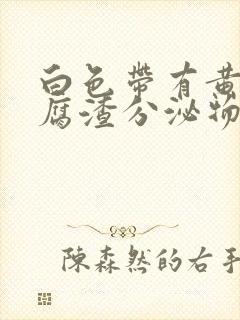 白色帶有黄
腐渣分泌物
陳森然的右手